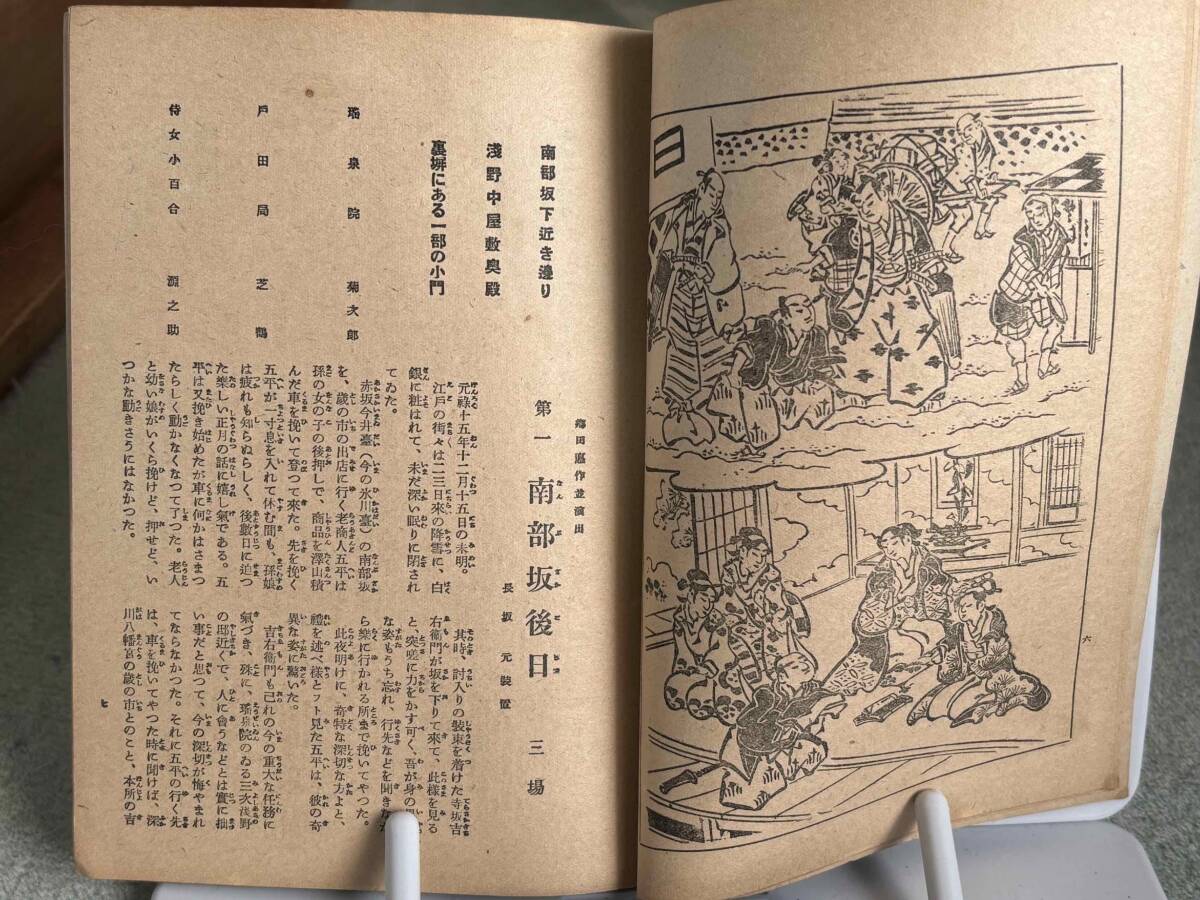 六
郷田悳作並演出
第一 南部坂後日 三場
長坂元裝置
南部坂下近き邊り
淺野中屋敷奥殿
裏塀にある一部の小門
瑤泉院 菊次郎
戸田局 芝鶴
侍女小百合 源之助
元祿十五年十二月十五日の未明。
江戸の街々は二三日來の降雪に、白
銀に粧はれて、未だ深い眠りに閉され
てゐた。
赤坂今井臺(今の氷川臺)の南部坂
を、歳の市の出店に行く老商人五平は
孫の女の子の後押しで、商品を澤山積
んだ車を挽いて登つて來た。先を挽く
五平が一寸息を入れて休む間も、孫娘
は疲れも知らぬらしく、後數日に迫つ
た樂しい正月の話に嬉し氣である。五
平は又挽き始めたが車に何かはさまつ
たらしく動かなくなつて了つた。老人
と幼い娘がいくら挽けど、押せど、い
つかな動きさうにはなかつた。
其時、討入りの裝束を着けた寺坂吉
右衞門が坂を下りて來て、此樣を見る
と、突嗟に力をかす可く、吾が身の
な姿もうち忘れ、行先などを聞きな
ら樂に行かれる所まで挽いてやつた。
此夜明けに、奇特な深切な方よと、
禮を述べ樣とフト見た五平は、彼の奇
異な姿に驚いた。
吉右衞門も己れの今の重大な任務に
氣づき、殊に、瑤泉院のゐる三次淺野
の邸近くで、人に會うなどとは實に拙
い事だと思つて、今の深切が悔やまれ
てならなかつた。それに五平の行く先
は、車を挽いてやつた時に聞けば、深
川八幡宮の歳の市とのこと、本所の吉
七